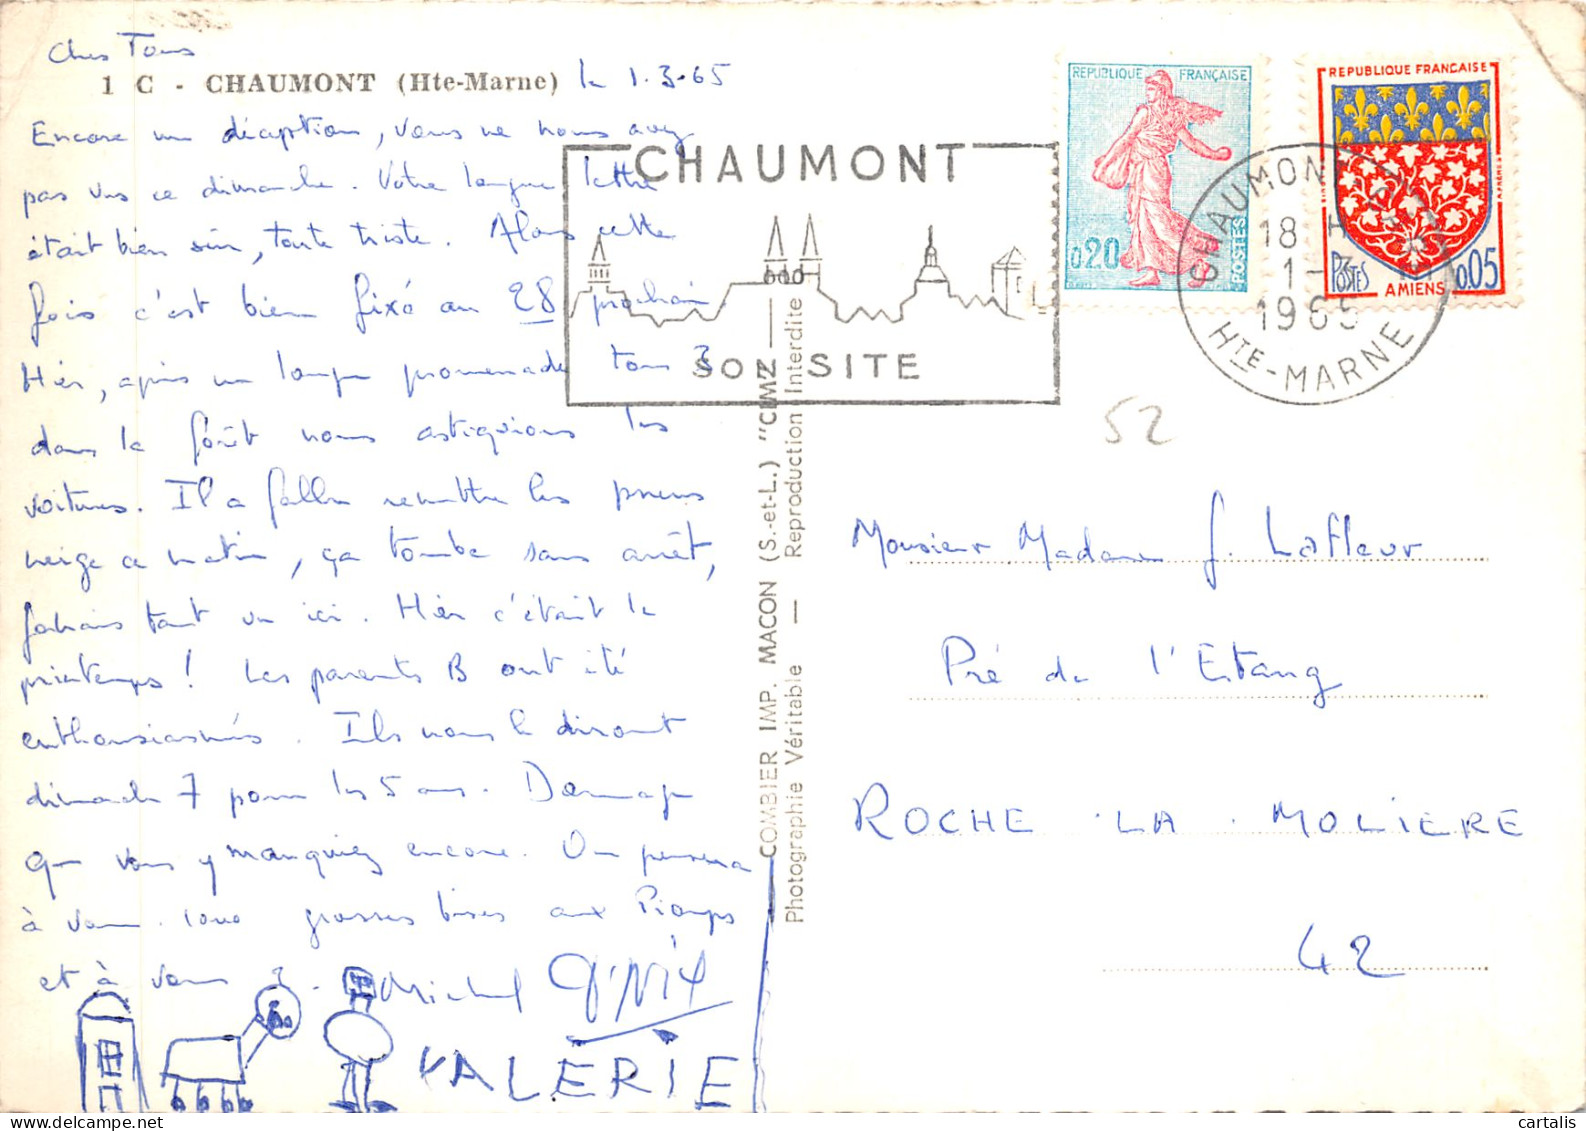 Chers Tous
1 C - CHAUMONT (Hte-Marne) le 1.3.65
Encore une déception, vous ne nous avez
pas vus ce dimanche. Votre longue lettre
était bien sûr, toute triste. Alors cette
fois c'est bien fixé au 28 prochain
Hier, après une longue promenade tous 3
dans la forêt nous astiquions les
voitures. Il a fallu remettre les pneus
neige ce matin, ça tombe sans arrêt,
jamais tant vu ici. Hier c'était le
printemps ! Les parents B ont été
enthousiasmés. Ils nous le diront
dimanche 7 pour les 5 ans. Dommage
que vous y manquiez encore. On pensera
à vous. 1000 grosses bises aux
et à vous 3. Michel
VALERIE
COMBIER IMP. MACON (S.-et-L.) "CIM"
Photographie Véritable — Reproduction Interdite
CHAUMONT
SON SITE
REPUBLIQUE FRANÇAISE
0,20
POSTES
REPUBLIQUE FRANCAISE
POSTES
AMIENS
0,05
CHAUMONT
18 H
1-3
1965
HTE-MARNE
52
Monsieur Madame J. Lafleur
Pré de l'Etang
ROCHE . LA . MOLIERE
42
cartalis